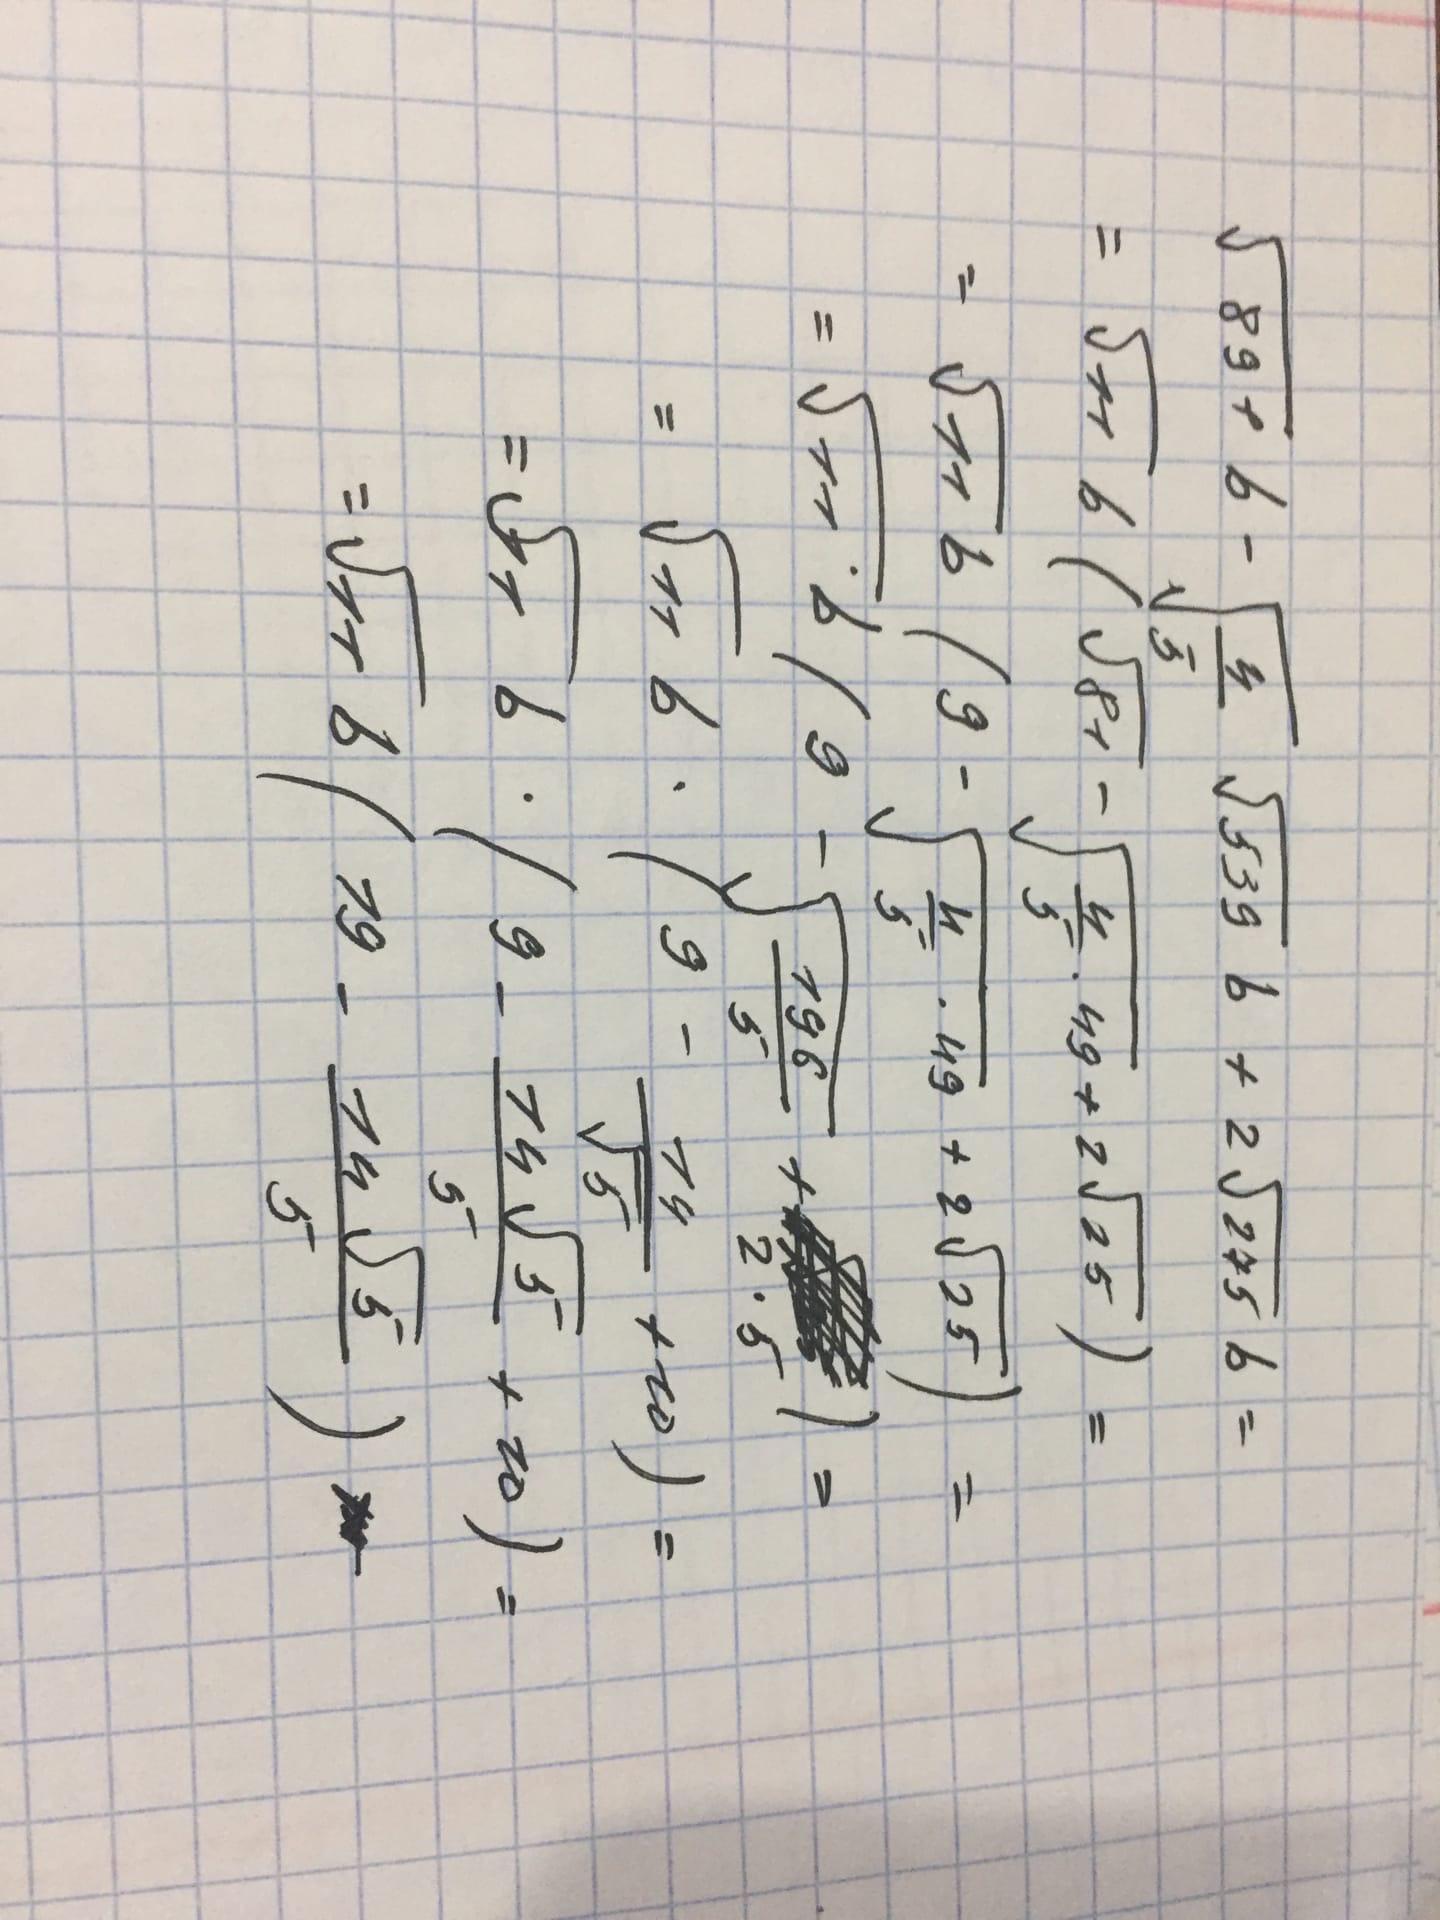 √891 b - √(4/5) √539 b + 2√275 b =
= √11 b (√81 - √(4/5 · 49) + 2√25) =
= √11 b (9 - √(4/5 · 49) + 2√25) =
= √11 · b (9 - √(196/5) + 2·5) =
= √11 b · (9 - 14/√5 + 10) =
= √11 b · (9 - 14√5/5 + 10) =
= √11 b (19 - 14√5/5)